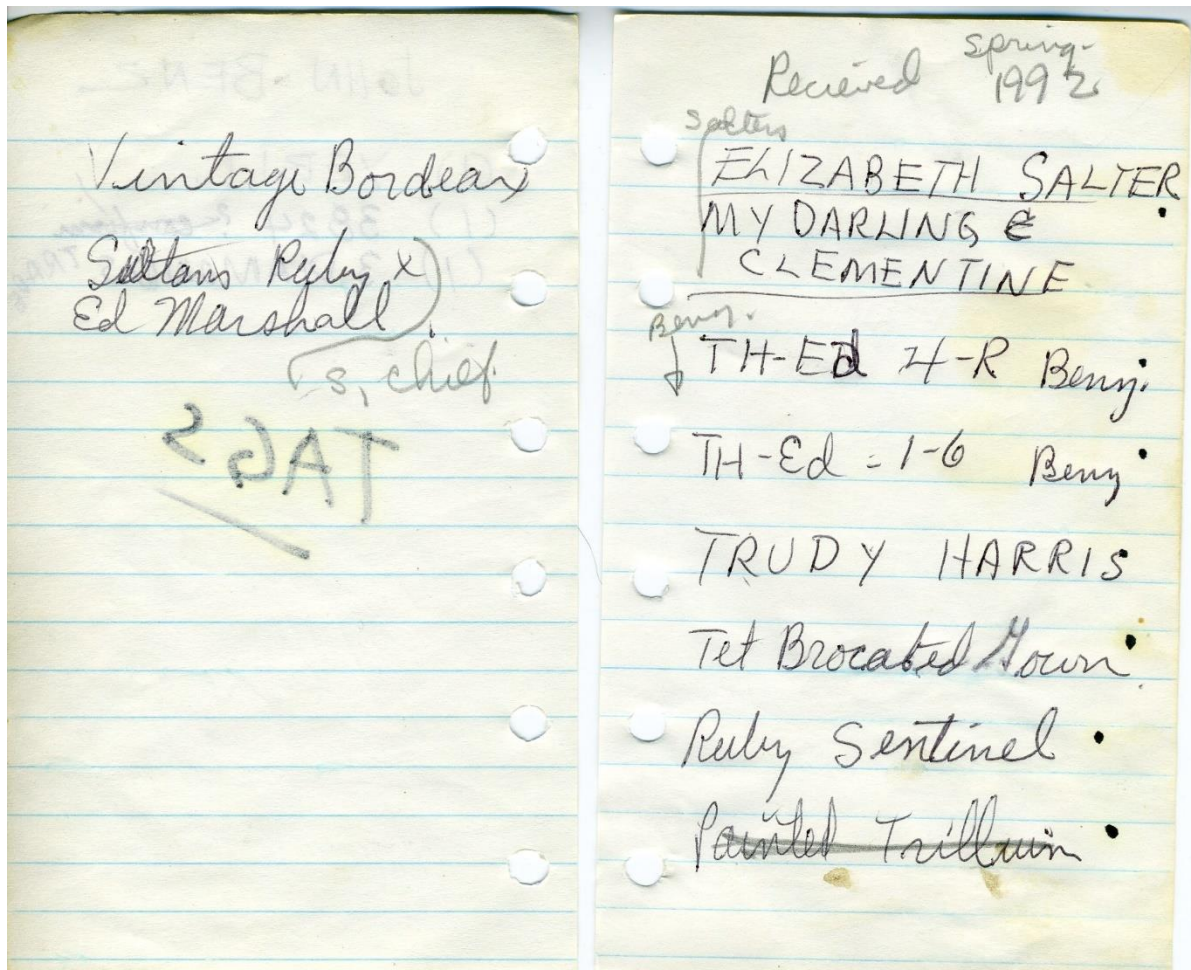 Vintage Bordeaux
Sultans Ruby x
Ed Marshall
s, chief.
TAGS
Recieved spring-
1992
Salters
ELIZABETH SALTER
MY DARLING
CLEMENTINE
Benz.
TH-Ed 4-R Benz.
TH-Ed = 1-6 Benz
TRUDY HARRIS
Tet Brocaded Gown
Ruby Sentinel
Painted Trillium
JOHN - BENZ